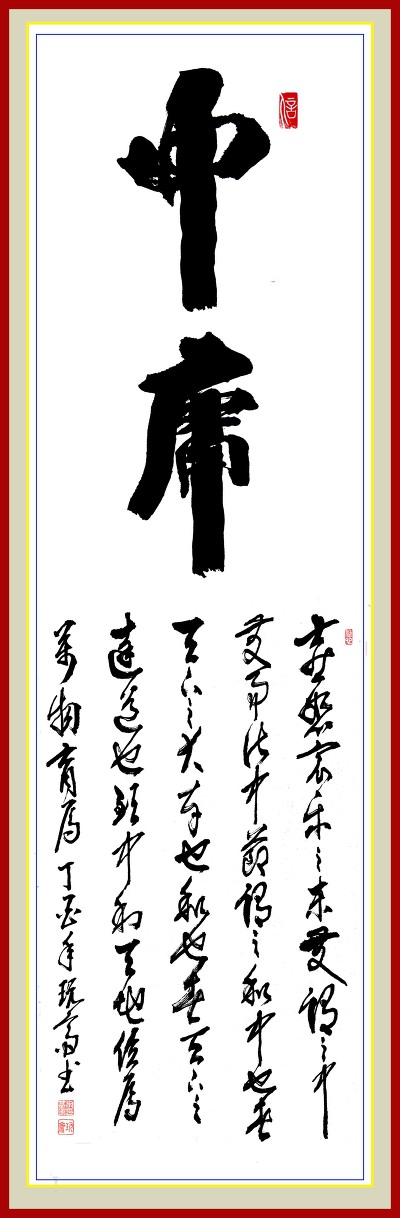 中庸
喜怒哀乐之未發謂之中
發而皆中節謂之和中也者
天下之大本也和也者天下之
達道也致中和天地位焉
萬物育焉丁酉年书